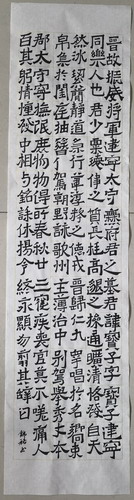 晉故振威將軍建寧太守爨府君之墓諱寶子字寶子建寧
同樂人也君少稟瓌偉之質長挺高邈之操通曠清恪發自天
然冰潔簡靜道兼行葦淳粹之德戎晉歸仁九皋唱於名嚮束
帛集於閨庭抽簪俟駕朝野詠歌州主簿治中別駕舉秀才本
郡太守寧撫氓庶物物得所春秋廿三寢疾喪官莫不嗟痛人
百其躬情慟發中相與銘誄休揚令終永顯勿翦其辭曰